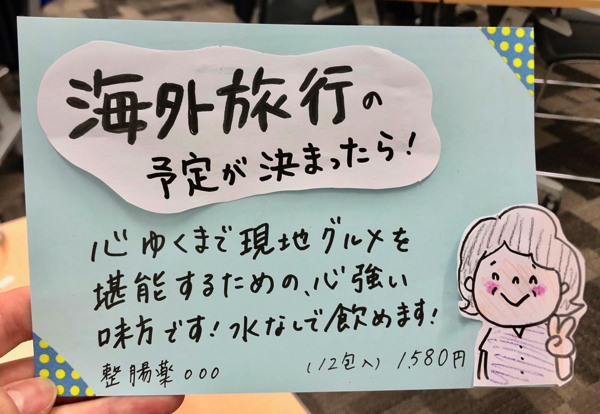 海外旅行の
予定が決まったら!
心ゆくまで現地グルメを
堪能するための、心強い
味方です!水なしで飲めます!
整腸薬○○○ (12包入) 1,580円